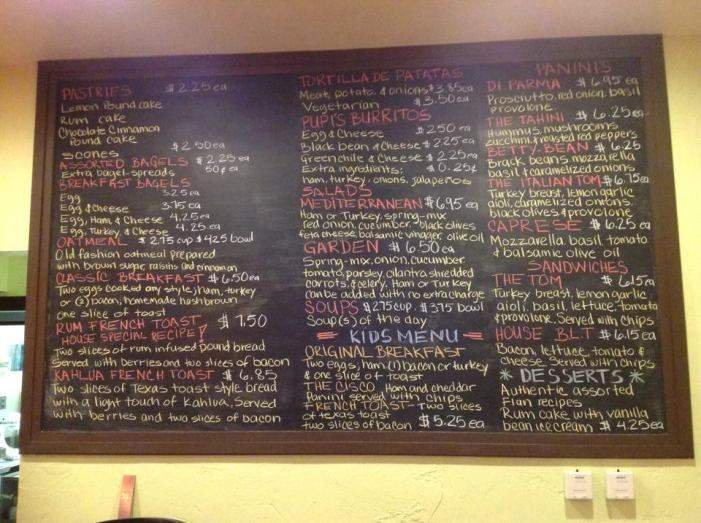 PASTRIES $2.25 ea
Lemon Pound cake
Rum cake
Chocolate Cinnamon
Pound cake
Scones $2.50 ea
ASSORTED BAGELS $2.25 ea
Extra bagel-spreads 50¢ ea
BREAKFAST BAGELS
Egg 3.25 ea
Egg & Cheese 3.75 ea
Egg, Ham, & Cheese 4.25 ea
Egg, Turkey, & Cheese 4.25 ea
OATMEAL $2.75 cup $4.25 bowl
Old fashion oatmeal prepared
with brown sugar, raisins and cinnamon
CLASSIC BREAKFAST $6.50 ea
Two eggs cooked any style, ham, turkey
or (2) bacon, homemade hashbrown
one slice of toast
RUM FRENCH TOAST $7.50
HOUSE SPECIAL RECIPE!
Two slices of rum infused pound bread
Served with berries and two slices of bacon
KAHLUA FRENCH TOAST $6.85
Two slices of Texas toast style bread
with a light touch of Kahlua. Served
with berries and two slices of bacon
TORTILLA DE PATATAS
Meat, potato, & onions $3.85 ea
Vegetarian $3.50 ea
PUPI'S BURRITOS
Egg & Cheese $2.50 ea
Black bean & Cheese $2.25 ea
Greenchile & Cheese $2.25 ea
Extra ingredients: $0.25¢
ham, turkey, onions, jalapeños
SALADS
MEDITERRANEAN $6.95 ea
Ham or Turkey, spring-mix
red onion, cucumber, black olives
feta cheese, balsamic vinager, olive oil
GARDEN $6.50 ea
Spring-mix, onion, cucumber
tomato, parsley, cilantro, shredded
carrots, & celery. Ham or Turkey
can be added with no extra charge
SOUPS $2.75 cup $3.75 bowl
Soup(s) of the day
KIDS MENU
ORIGINAL BREAKFAST
Two eggs, ham (1) bacon or turkey
& one slice of toast
THE CISCO Ham and cheddar
Panini served with chips
FRENCH TOAST - Two slices
of texas toast
two slices of bacon $5.25 ea
PANINIS
DI PARMA $6.95 ea
Prosciutto, red onion, basil
provolone
THE TAHINI $6.25 ea
Hummus, mushrooms
zucchini, & roasted red peppers
BETTY BEAN $6.25
Black beans, mozzarella
basil & caramelized onions
THE ITALIAN TOM $6.75
Turkey breast, lemon garlic
aioli, caramelized onions
black olives & provolone
CAPRESE $6.25 ea
Mozzarella, basil, tomato
& balsamic olive oil
SANDWICHES
THE TOM $6.15 ea
Turkey breast, lemon garlic
aioli, basil, lettuce, tomato
& provolone. Served with chips
HOUSE BLT $6.15 ea
Bacon, lettuce, tomato &
cheese. Served with chips
* DESSERTS *
Authentic assorted
Flan recipes
Rum cake with vanilla
bean ice cream $4.25 ea